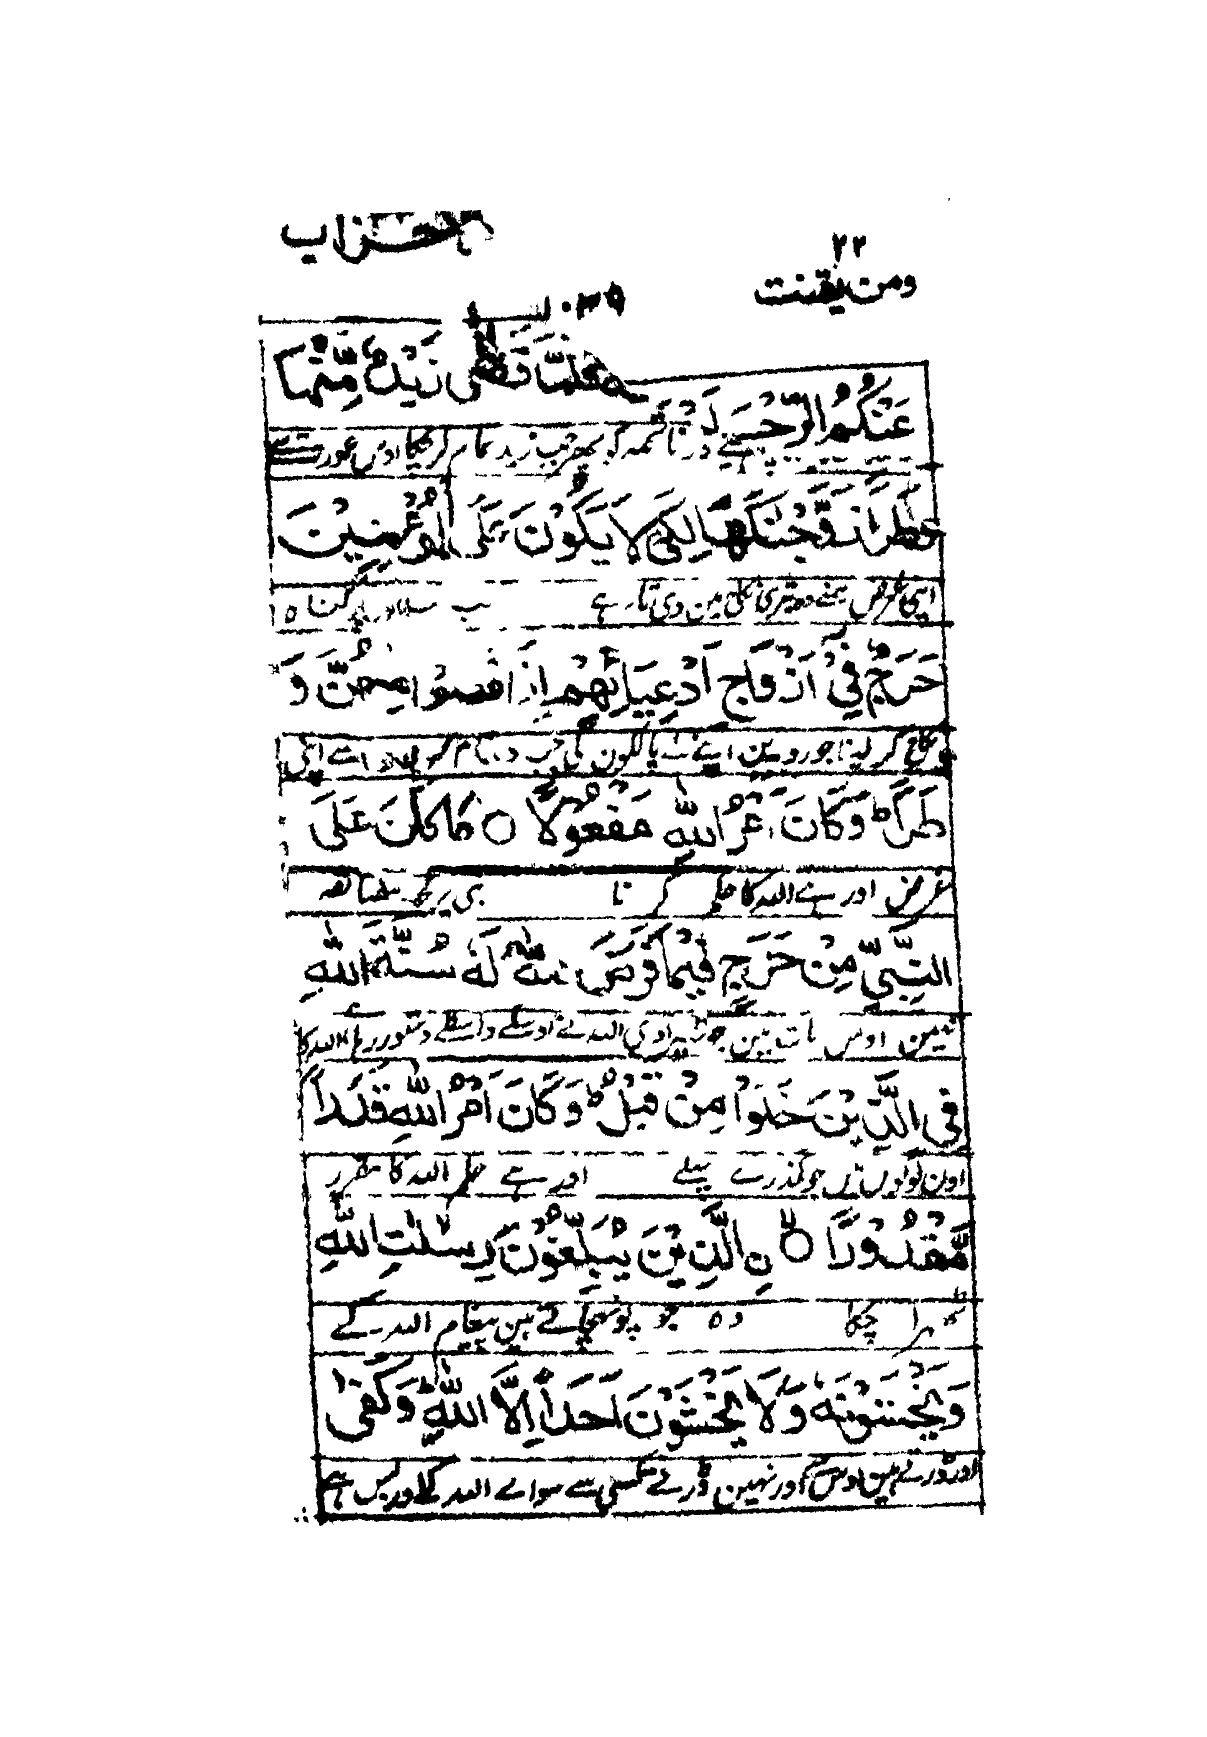 الاحزاب ٣٣
٢٢ ومن يقنت
فَلَمَّا قَضٰى زَيْدٌ مِّنْهَا
عَنْكُمُ الرِّجْسَ
پھر جب زید تمام کر چکا اوس عورت سے
وَطَرًا زَوَّجْنٰكَهَا لِكَىْ لَا يَكُوْنَ عَلَى الْمُؤْمِنِيْنَ
اپنی غرض ہمنے وہ تیری نکاح مین دی تا نہ رہے سب مسلمانون پر گناہ
حَرَجٌ فِيْٓ اَزْوَاجِ اَدْعِيَآئِهِمْ اِذَا قَضَوْا مِنْهُنَّ وَ
نکاح کر لینا جوروین اپنے لے پالکون کی جب وہ تمام کرین اون سے اپنی
طَرًا ؕ وَكَانَ اَمْرُ اللهِ مَفْعُوْلًا ○ مَا كَانَ عَلَى
غرض اور ہے اللہ کا حکم کرنا نبی پر کچھ مضائقہ
النَّبِيِّ مِنْ حَرَجٍ فِيْمَا فَرَضَ اللهُ لَهٗ ؕ سُنَّةَ اللهِ
نہین اوس بات مین جو ٹھہرا دی اللہ نے اوسکے واسطے دستور رہا ہے اللہ کا
فِي الَّذِيْنَ خَلَوْا مِنْ قَبْلُ ؕ وَكَانَ اَمْرُ اللهِ قَدَرًا
اون لوگون مین جو گذرے پہلے اور ہے حکم اللہ کا مقرر
مَّقْدُوْرًا ○ نِ الَّذِيْنَ يُبَلِّغُوْنَ رِسٰلٰتِ اللهِ
ٹھہرا چکا وہ جو پہونچاتے ہین پیغام اللہ کے
وَيَخْشَوْنَهٗ وَلَا يَخْشَوْنَ اَحَدًا اِلَّا اللهَ ؕ وَكَفٰى
اور ڈرتے ہین اوس سے اور نہین ڈرتے کسی سے سوائے اللہ کے اور بس ہے